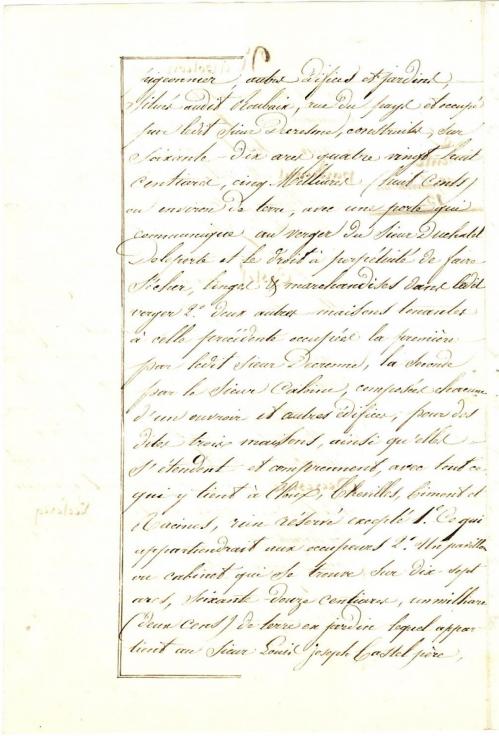 pigeonnier autres édifices et jardins,
situés audit Roubaix, rue du pays et occupé
par ledit Sieur Decresme, construits, sur
soixante-dix ares quatre vingt huit
centiares, cinq Milliares (huit Cents)
ou environ de terre, avec une porte qui
communique au verger du Sieur Duchatel
Deleporte et le droit à perpétuité de faire
sécher, linges & marchandises dans ledit
verger 2.° deux autres maisons tenantes
à celle précédente occupées la première
par ledit Sieur Decresme, la seconde
par le Sieur Cabine, composées chacune
d'un ouvroir et autres édifices, pour des
dites trois maisons, ainsi qu'elles
s'étendent et comprennent, avec tout ce
qui y tient à Cloux, Chevilles, Ciment et
Racines, rien réservé excepté 1.° Ce qui
appartiendrait aux occupeurs 2.° Un pavillon
ou cabinet qui se trouve sur dix-sept
ares, soixante douze centiares, un milliare
(deux Cens) de terre en jardin lequel appar-
tient au Sieur Louis Joseph Castel père,